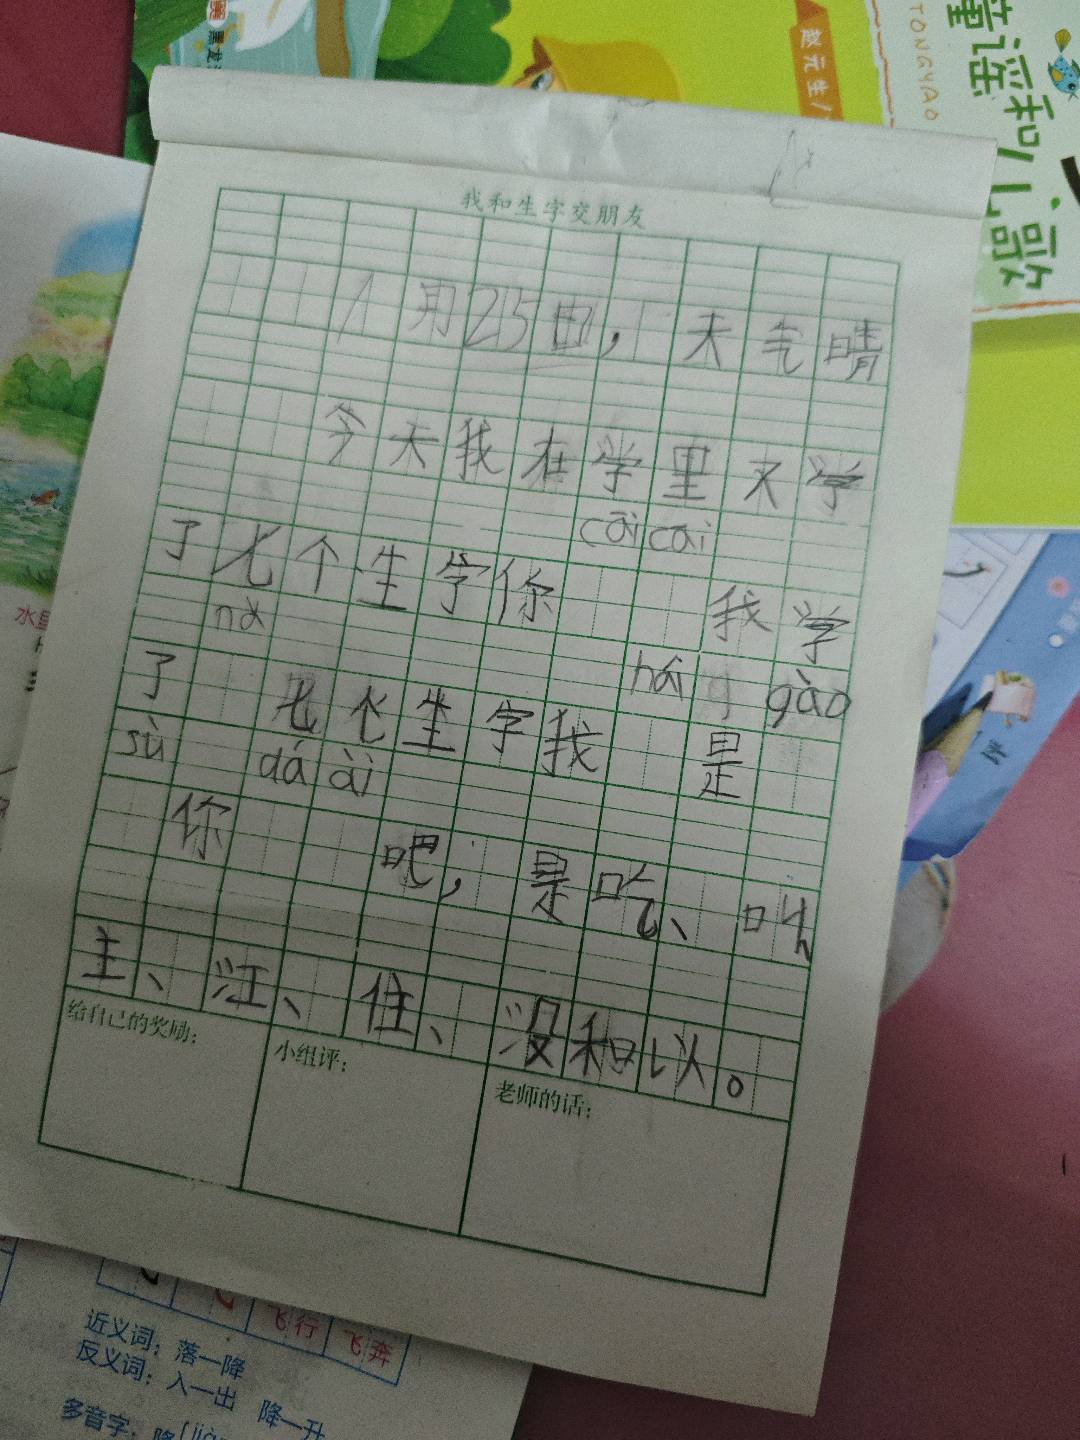 赵元生
童谣和儿歌
TONGYAO
我和生字交朋友
1月25日，天气晴
今天我在学里又学
cāi cai
了七个生字你 我学
nà
了 七个生字我 是
hái gào
sù dá ài
你 吧，是吃、叫
主、江、住、没和以。
给自己的奖励：
小组评：
老师的话：
飞行 飞奔
近义词：落—降
反义词：入—出 降—升
多音字：降